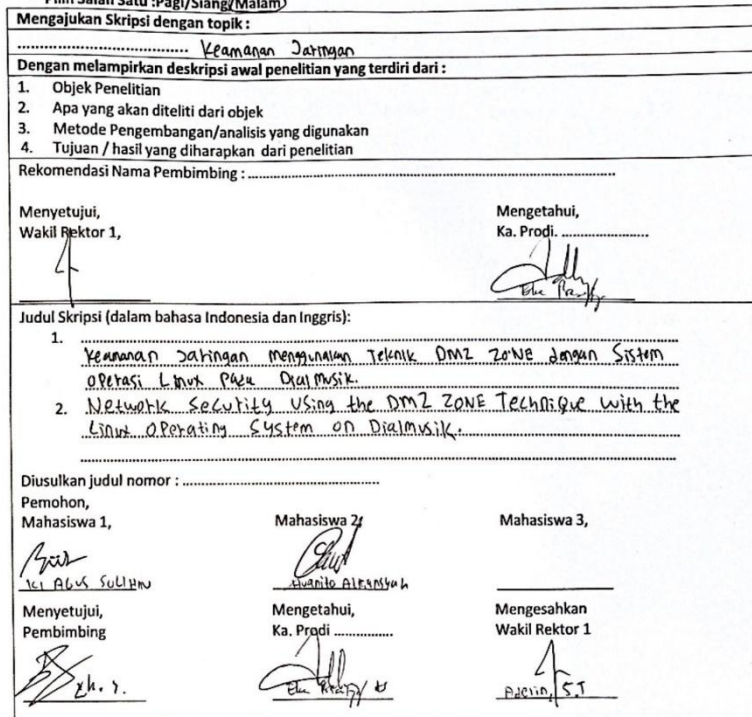 Pilih Salah Satu :Pagi/Siang/Malam
Mengajukan Skripsi dengan topik :
.......................................... Keamanan Jaringan
Dengan melampirkan deskripsi awal penelitian yang terdiri dari :
1. Objek Penelitian
2. Apa yang akan diteliti dari objek
3. Metode Pengembangan/analisis yang digunakan
4. Tujuan / hasil yang diharapkan dari penelitian
Rekomendasi Nama Pembimbing : ..........................................................................................
Menyetujui, Mengetahui,
Wakil Rektor 1, Ka. Prodi. ......................
Judul Skripsi (dalam bahasa Indonesia dan Inggris):
1.
Keamanan Jaringan menggunakan Teknik DMZ ZONE dengan Sistem
Operasi Linux Pada Dialmusik.
2. Network Security Using the DMZ ZONE Technique with the
Linux Operating System on Dialmusik.
Diusulkan judul nomor : ................................................
Pemohon,
Mahasiswa 1, Mahasiswa 2, Mahasiswa 3,
Menyetujui, Mengetahui, Mengesahkan
Pembimbing Ka. Prodi ............... Wakil Rektor 1